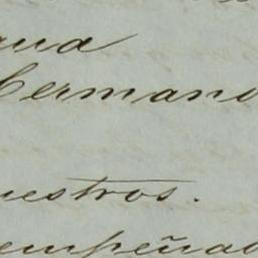 gua
Herman
uestros.
empeñad